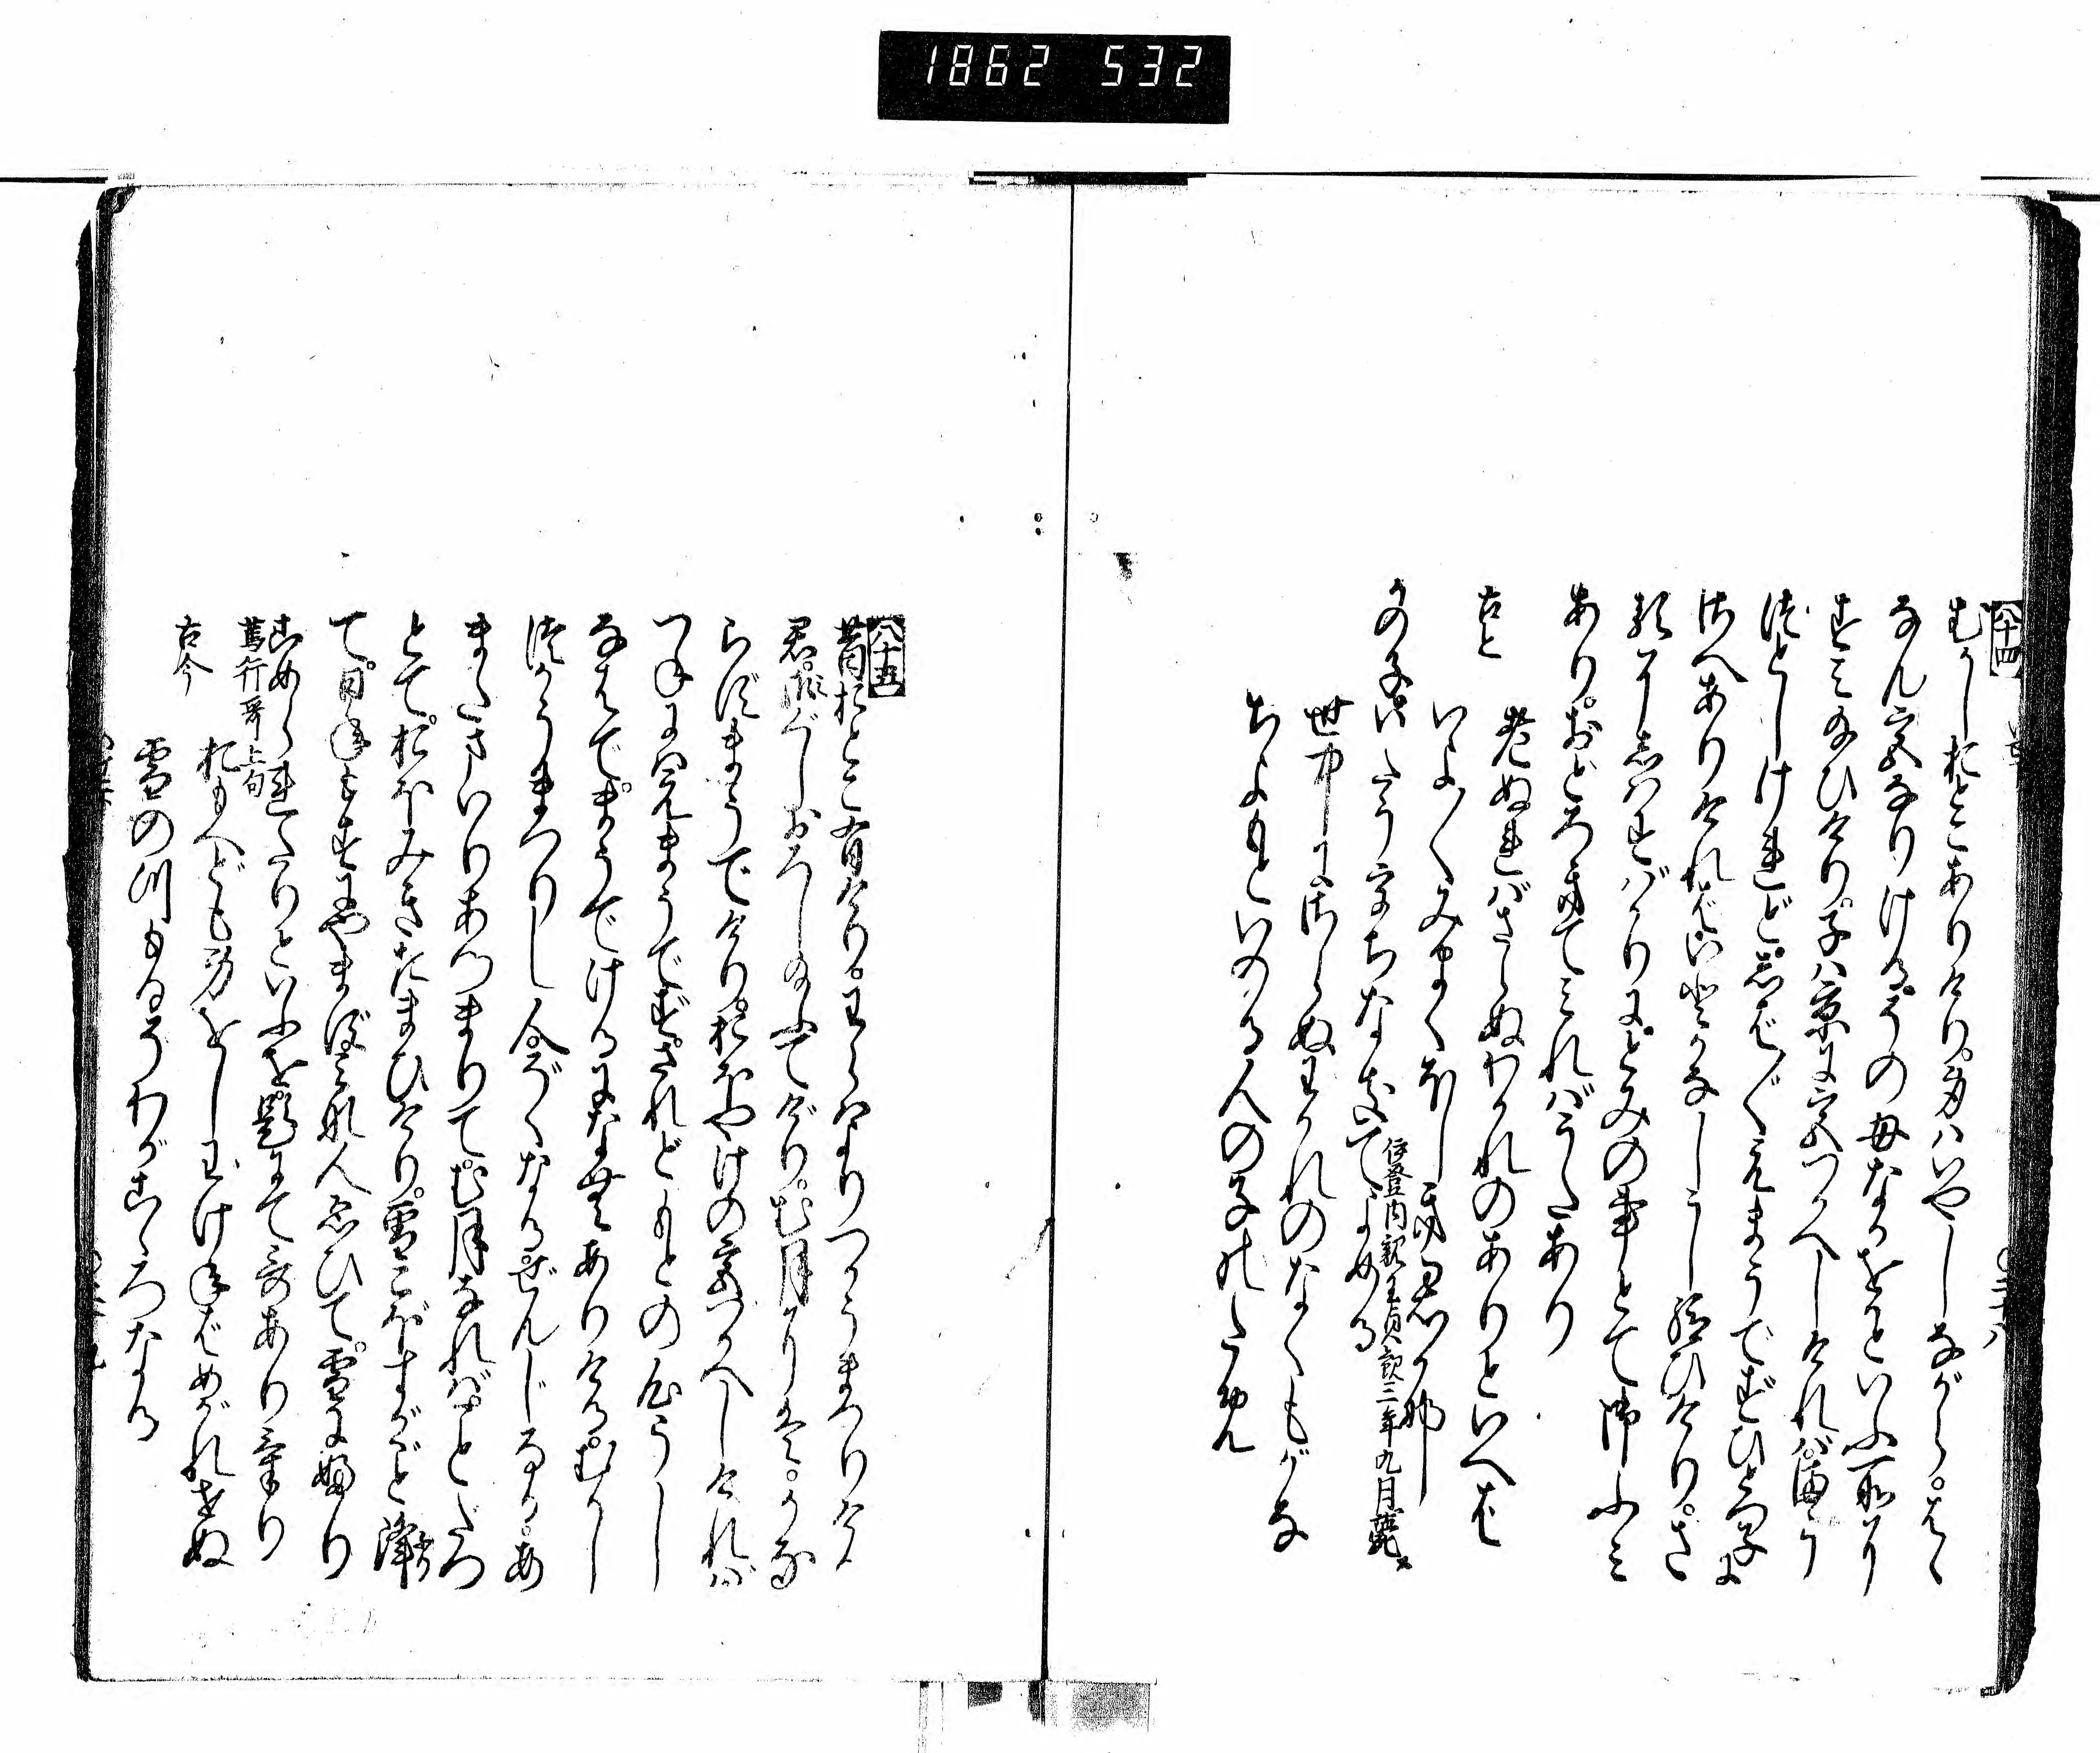 1862 532
八十四
むかしおとこありけり。身はいやしながら。はゝ
なん宮なりける。その母なかをかといふ所に
すみ給ひけり。子は京に宮づかへしければ。まう
づとしけれど。しば／＼えまうでず。ひとつ子に
さへありければ。いとかなしうし給ひけり。さ
るにしはすばかりに。とみの事とて御ふみ
あり。おどろきてみればうたあり
古今
老ぬればさらぬわかれのありといへば
いよ／＼みまくほしき君かな
かの子いたううちなきてよめる
伊登内親王貞観三年九月薨
世中にさらぬわかれのなくもがな
ちよもといのる人の子のため
八十五
昔おとこ有けり。わらはよりつかうまつりける
君。御ぐしおろし給ふてけり。む月に
らずまうでけり。おほやけの宮づかへしければ
つねにはえまうでず。されどもとの心うし
なはでまうでけるになむありける。むかし
つかうまつりし人。ぞくなる。ぜんじなる。あ
またまいりあつまりて。む月なればことだつ
とて。おほみきたまひけり。雪こぼすがごと降
て。日ねもすにやまず。みな人ゑひて。雪に降り
こめられたりといふを題にて哥ありけり
業行哥上句
古今
おもへども身をしわけねばめがれせぬ
雪のつもるぞわがこゝろなる